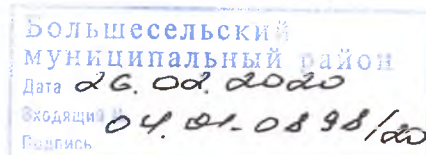 Большесельский
муниципальный район
Дата 26.02.2020
Входящий 04.01-0898/20
Подпись